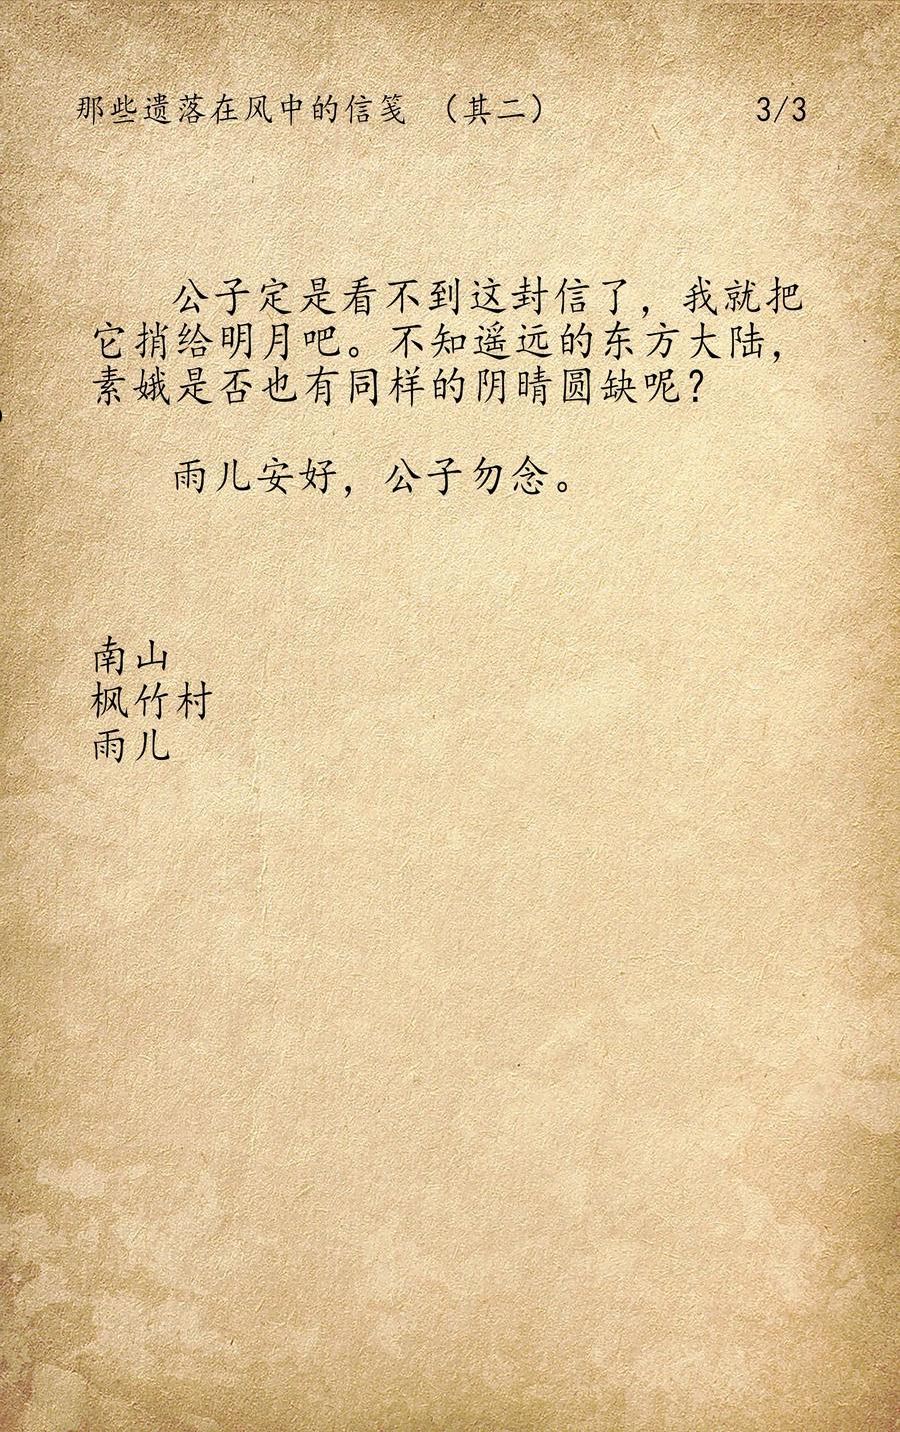 那些遗落在风中的信笺 （其二） 3/3
公子定是看不到这封信了，我就把
它捎给明月吧。不知遥远的东方大陆，
素娥是否也有同样的阴晴圆缺呢？
雨儿安好，公子勿念。
南山
枫竹村
雨儿